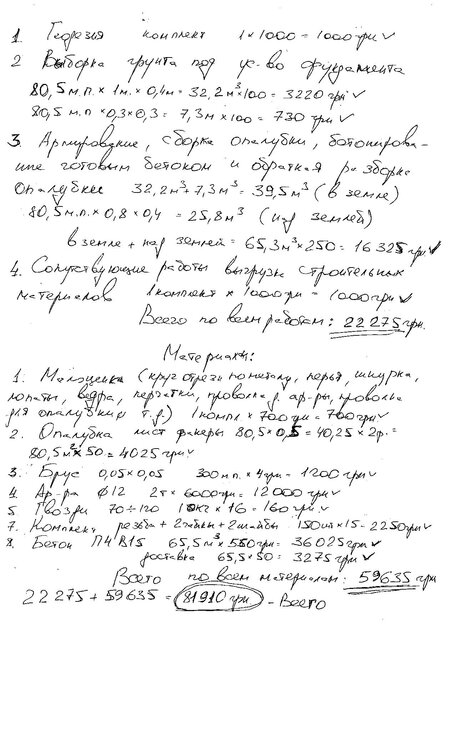 1. Геодезия комплект 1 x 1000 = 1000 грн ✓
2 Выборка грунта под ус-во фундамента
80,5 м.п. x 1м. x 0,4м = 32,2 м³ x 100 = 3220 грн ✓
80,5 м.п x 0,3 x 0,3 = 7,3 м x 100 = 730 грн ✓
3. Армирование, сборка опалубки, бетонирова-
ние готовым бетоном и обратная разборка
опалубки 32,2 м³ + 7,3 м³ = 39,5 м³ (в земле)
80,5 м.п. x 0,8 x 0,4 = 25,8 м³ (над землей)
в земле + над землей = 65,3 м³ x 250 = 16325 грн ✓
4. Сопутствующие работы выгрузка строительных
материалов 1 комплект x 1000 грн = 1000 грн ✓
Всего по всем работам: 22275 грн.
Материалы:
1. Мелоценка (круг отрезн по металлу, перья, шнурка,
лопаты, ведра, перчатки, проволка д. ар-ры, проволка
для опалубки и т.д.) 1 компл x 700 грн = 700 грн ✓
2. Опалубка лист фанеры 80,5 x 0,5 = 40,25 x 2 =
80,5 м² x 50 = 4025 грн ✓
3. Брус 0,05 x 0,05 300 м.п. x 4 грн = 1200 грн ✓
4. Ар-ра Ф12 2т x 6000 грн = 12000 грн ✓
5 Гвозди 70÷120 10 кг x 16 = 160 грн ✓
7. Комплект резьба + 2 гайки + 2 шайбы 150 шт x 15 = 2250 грн ✓
8. Бетон П4 В15 65,5 м³ x 550 грн = 36025 грн ✓
доставка 65,5 x 50 = 3275 грн ✓
Всего по всем материалам: 59635 грн
22275 + 59635 = 81910 грн - Всего